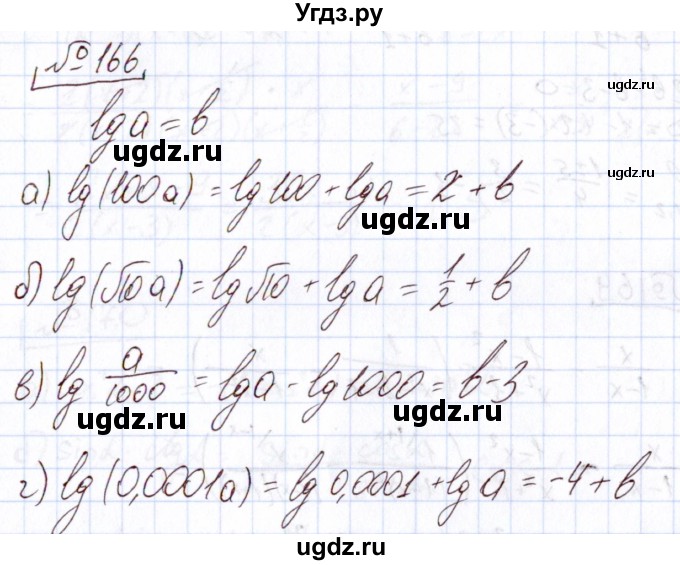 Угдз.ру
№166
ugdz.ru
lg a = b
ugdz.ru
ugdz.ru
а) lg(100a) = lg100 + lg a = 2 + b
ugdz.ru
б) lg(√10 a) = lg√10 + lg a = 1/2 + b
в) lg a/1000 = lg a - lg1000 = b - 3
ugdz.ru ugdz.ru
г) lg(0,0001a) = lg 0,0001 + lg a = -4 + b
ugdz.ru
ugdz.ru